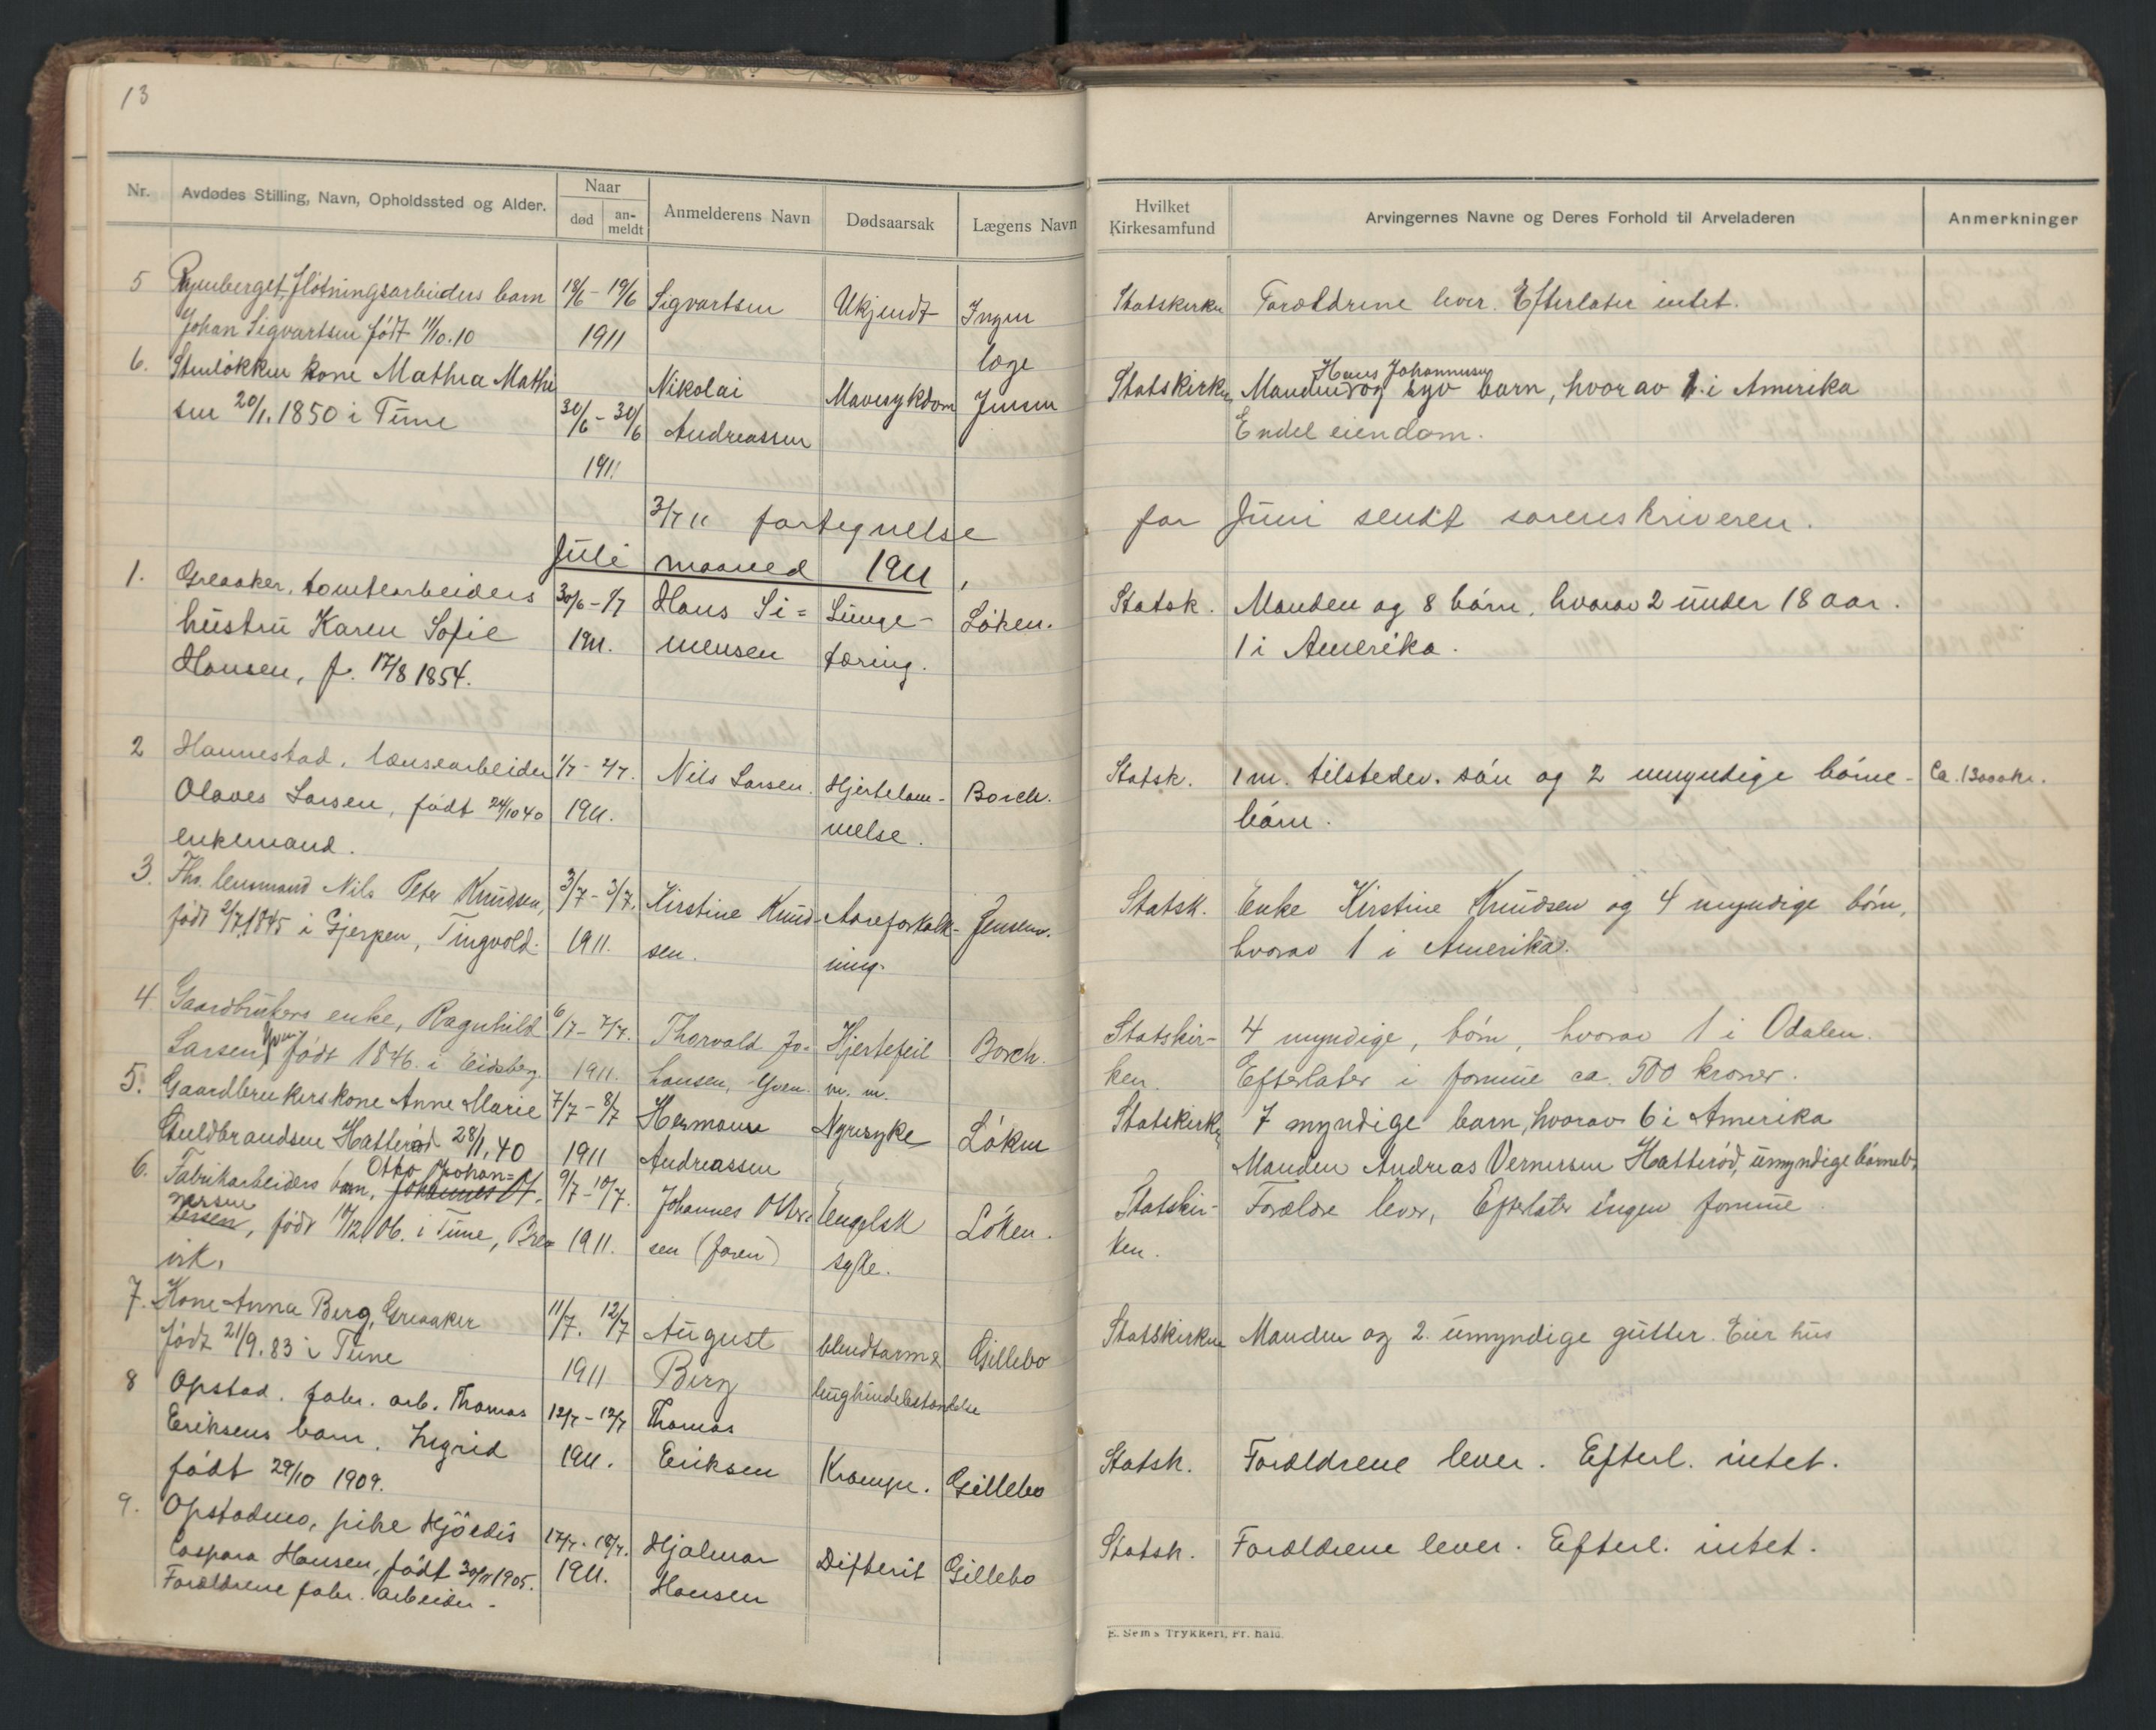 13
Nr. Avdødes Stilling, Navn, Opholdssted og Alder. Naar død an-meldt Anmelderens Navn Dødsaarsak Lægens Navn Hvilket Kirkesamfund Arvingernes Navne og Deres Forhold til Arveladeren Anmerkninger
5 flötningsarbeiders barn 18/6 - 19/6 Sigvartsen Ukjendt Ingen Statskirken Forældrene lever. Efterlater intet.
Johan Sigvartsen født 11/10.10 1911 læge
6. Stenløkken kone Mathea Mathi Nikolai Mavesykdom Jensen Statskirken Manden Hans Johannesen og syv barn, hvorav 1. i Amerika
sen 20/1. 1850 i Tune 30/6 - 30/6 Andreassen Endel eiendom.
1911
3/7 11 fortegnelse for Juni sendt sorenskriveren.
Juli maaned 1911.
1. Greaaker, tomtearbeiders 30/6 - 1/7 Hans Si= Lunge- Løken. Statsk. Manden og 8 børn, hvorav 2 under 18 aar.
hustru Karen Sofie 1911. mensen tæring. 1 i Amerika.
Hansen, f. 17/8 1854.
2 Hannestad, lænsearbeider 1/7 - 2/7. Nils Larsen. Hjertelam- Borch. Statsk. 1 m. tilstedev. søn og 2 umyndige børne- Ca. 13000 kr.
Olaves Larsen, født 24/10 40 1911. melse. børn.
enkemand.
3. Fhv. lensmand Nils Peter Knudsen, 3/7 - 3/7. Kirstine Knud- Aareforkalk- Jensen. Statsk. Enke Kirstine Knudsen og 4 myndige børn,
født 2/7 1845 i Gjerpen, Tingvold. 1911. sen. ning. hvorav 1 i Amerika.
4 Gaardbrukers enke, Ragnhild 6/7 - 7/7. Thorvald Jo- Hjertefeil Borch. Statskir- 4 myndige, børn, hvorav 1 i Odalen.
Larsen Yven født 1846. i Eidsberg. 1911. hansen, Yven. m. m. ken. Efterlater i formue ca. 500 kroner.
5. Gaardbrukerskone Anne Marie 7/7 - 8/7 Hermann Nyresyke Løken Statskirken 7 myndige barn, hvorav 6 i Amerika
Guldbrandsen Hatterød 28/1, 40 1911 Andreassen Manden Andreas Vernersen Hatterød, umyndige barneb.
6. Fabrikarbeiders barn, Otto Johan= Johannes Ot- 9/7 - 10/7. Johannes Otter- Engelsk Løken. Statskir- Forældre lever, Efterlater ingen formue.
nesen tersen, født 17/12 06. i Tune, Bre= 1911. sen (faren) syke. ken.
vik.
7. Kone Anna Berg, Greaaker 11/7. 12/7 August blindtarm & Gillebo Statskirken Manden og 2. umyndige gutter. Eier hus
født 21/9. 83 i Tune 1911 Berg bughindebetændelse
8 Opstad. fabr. arb. Thomas 12/7 - 12/7 Thomas
Eriksens barn, Ingrid 1911. Eriksen Krampe. Gillebo Statsk. Forældrene lever. Efterl. intet.
født 29/10 1909.
9. Opstadmo, pike Hjördis 17/7 - 18/7. Hjalmar Difterit Gillebo Statsk. Forældrene lever. Efterl. intet.
Caspara Hansen, født 30/11 1905. 1911. Hansen
Forældrene fabr. arbeider.
E. Sem's Trykkeri, Fr.hald.